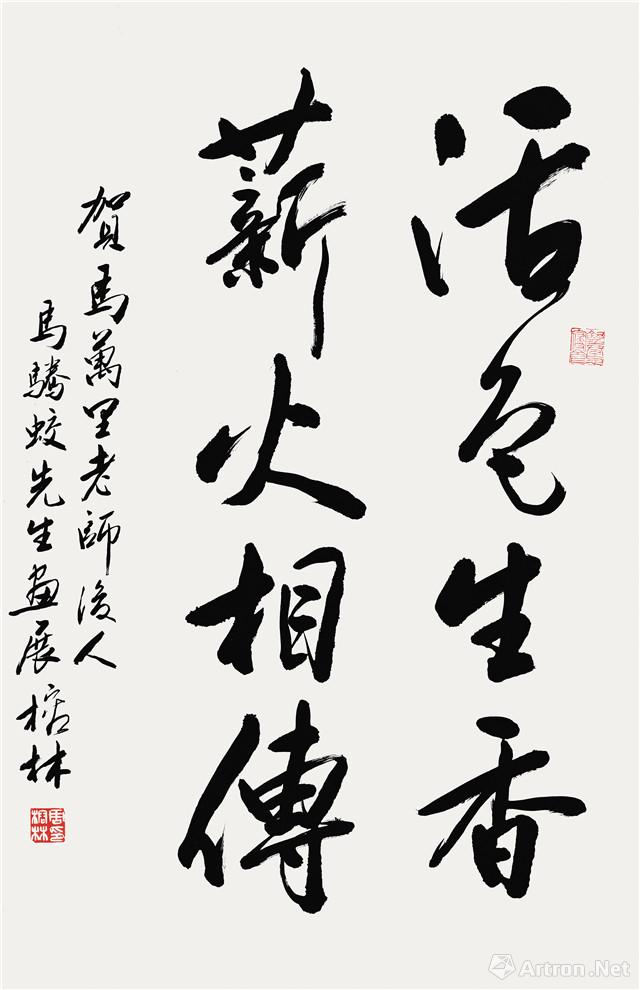 活色生香
薪火相傳
賀馬萬里老師後人
馬驣蛟先生畫展 林
Artron.Net